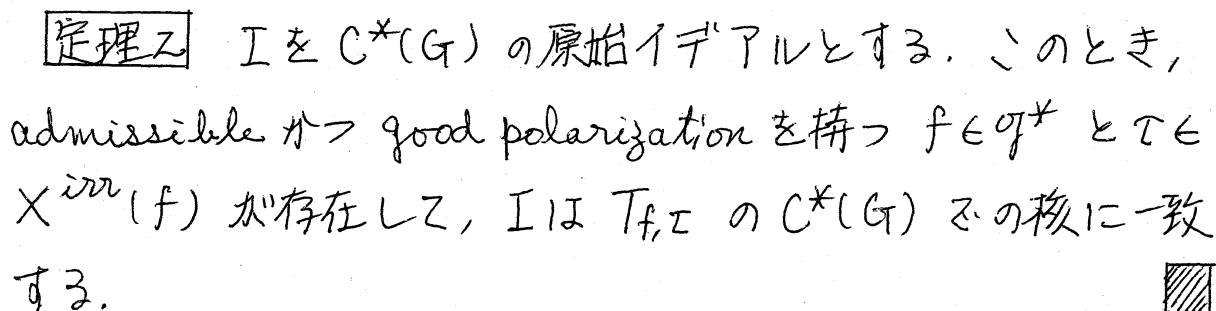 定理2 IをC*(G)の原始イデアルとする. このとき,
admissible かつ good polarization を持つ f∈𝔤* とτ∈
X^{irr}(f) が存在して, I は T_{f,τ} の C*(G) での核に一致
する.